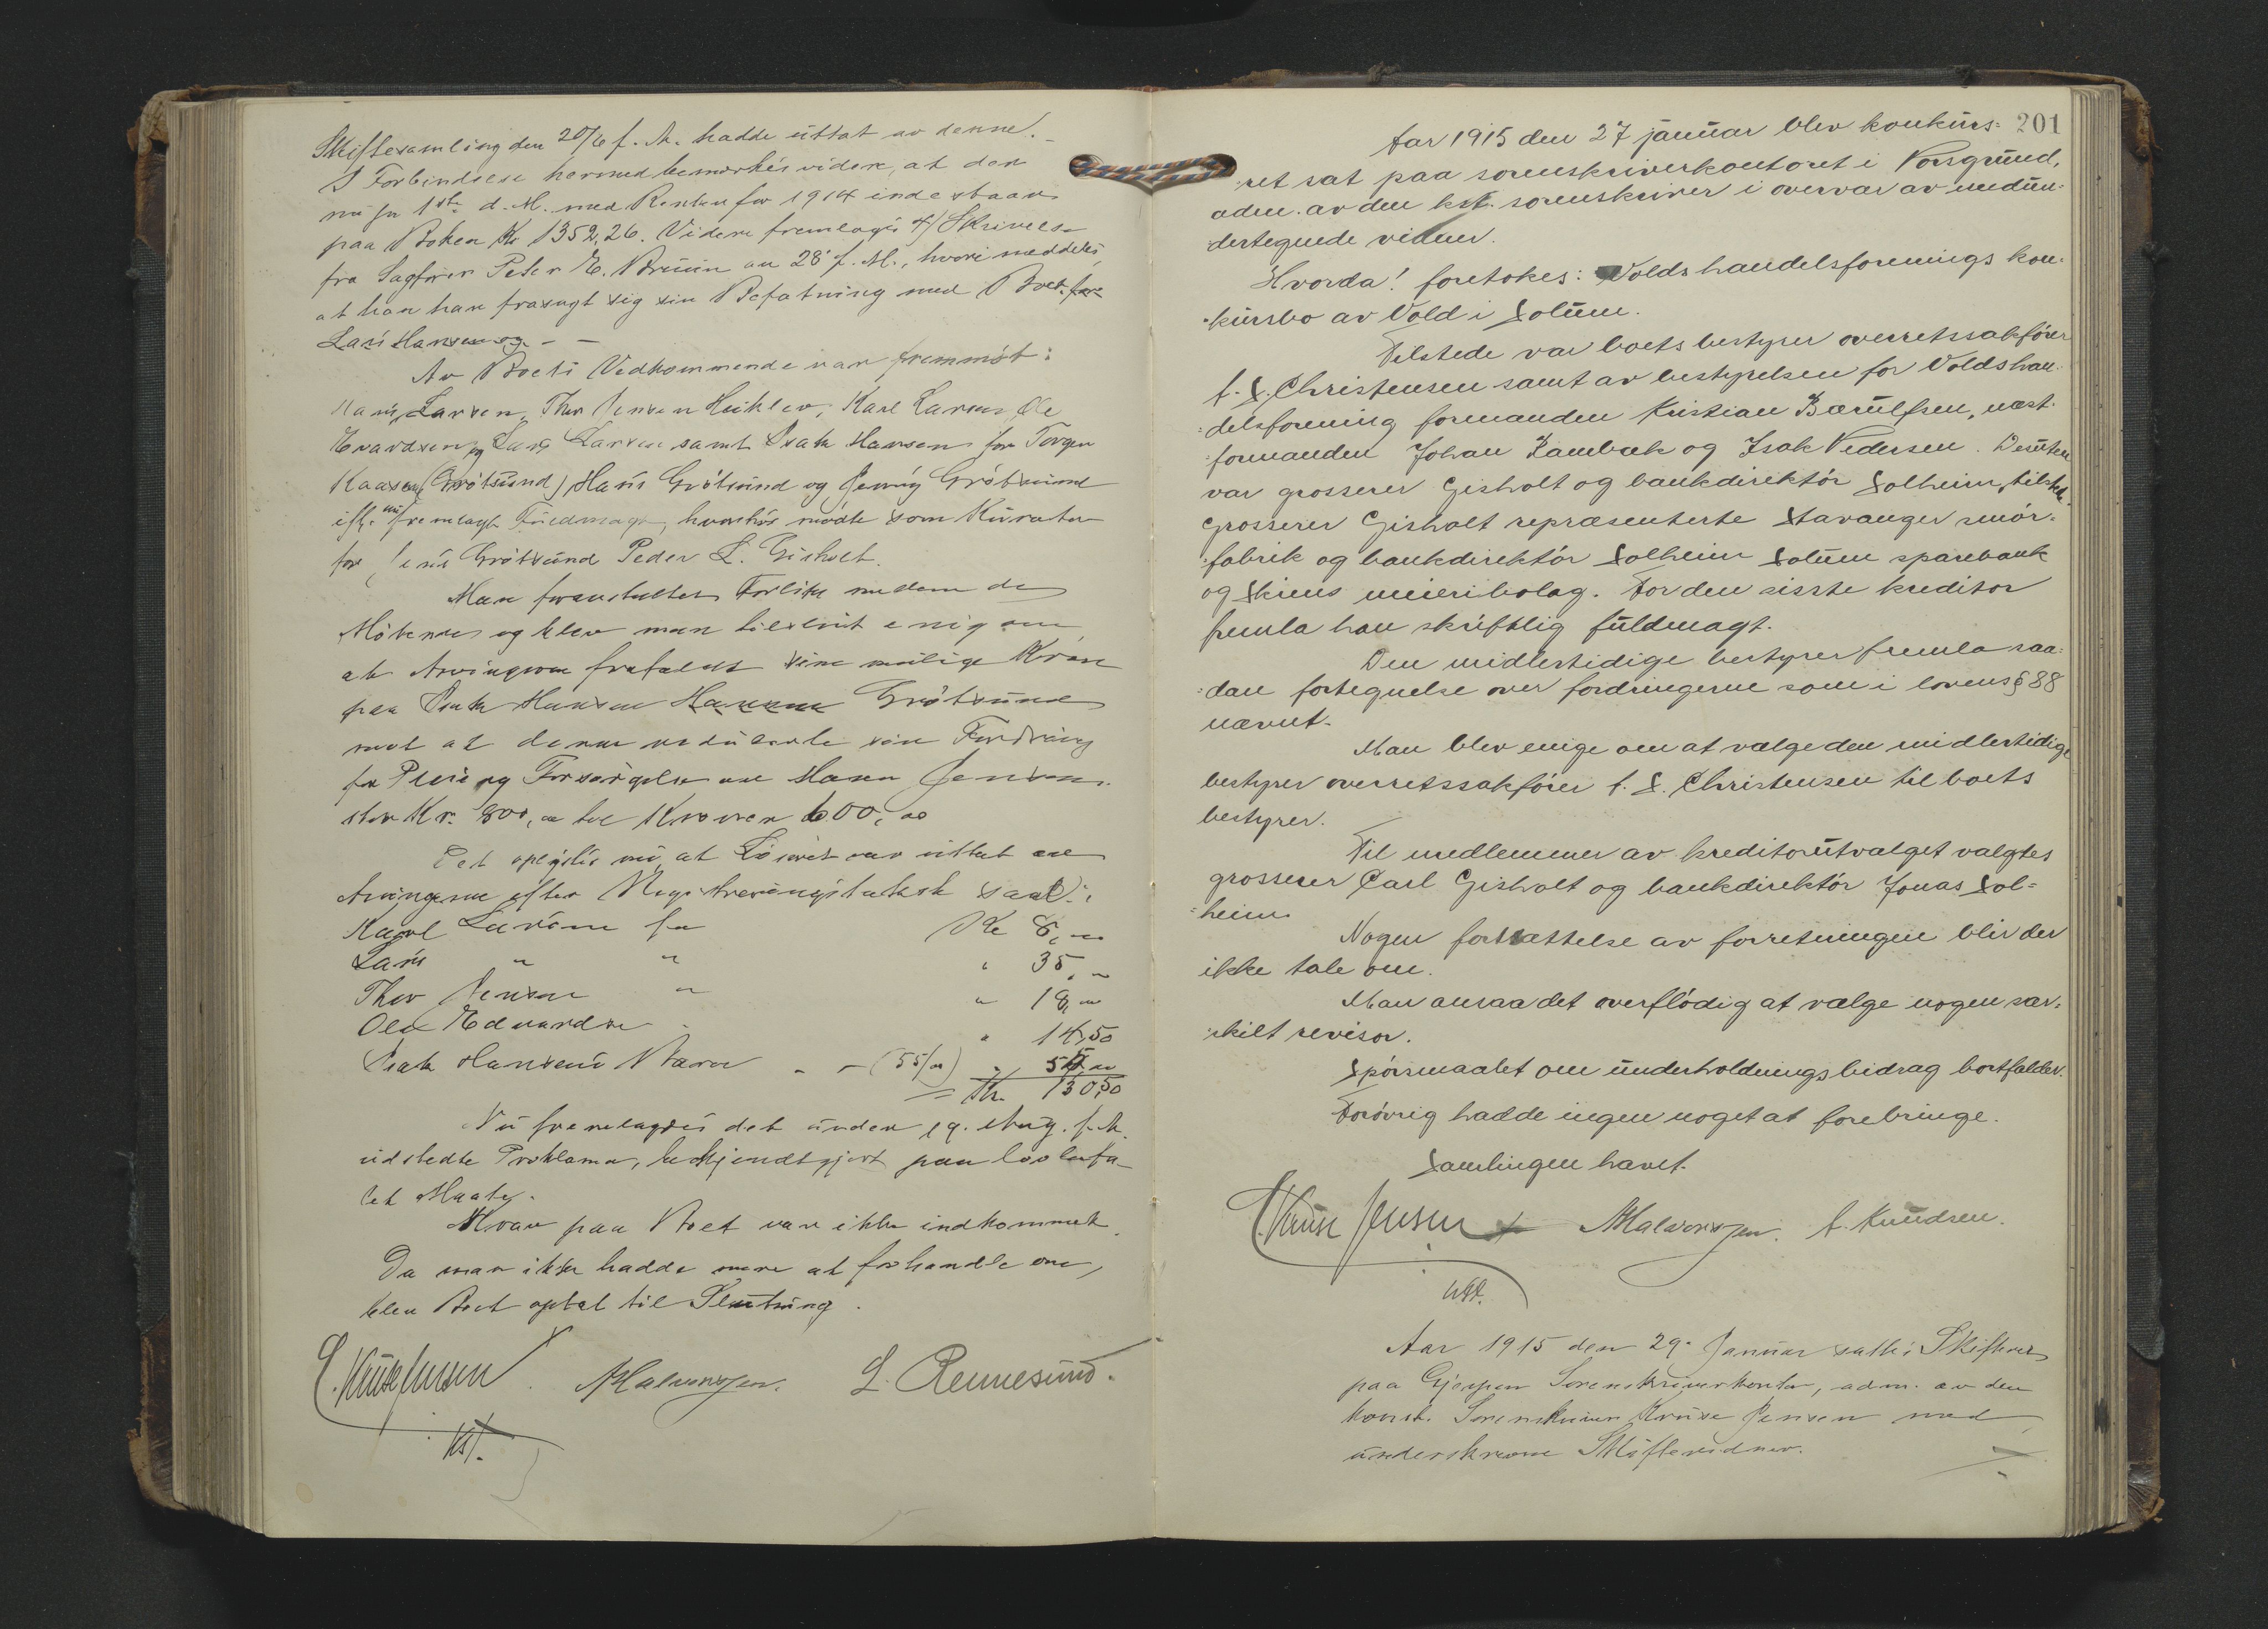 Skiftesamling den 20/6 f. A. hadde uttat av denne. –
I Forbindelse hermed bemærkes videre, at der
nu pr 1ste d. M. med Renten for 1914 indestaar
paa Boken Kr 1352,26. Videre fremlagdes 4/ Skrivelse
fra Sagfører Peter E. Bruun av 28' f. M., hvori meddeles,
at han har frasagt sig sin Befatning med Boet for
Lars Hansen og – –
Av Boets Vedkommende var fremmøt:
Hans Larsen, Thor Jensen Heiklev, Karl Larsen, Ole
Evardsen og Lars Larsen samt Isak Hansen for Torger
Kaasen (Grøtsund) Hans Grøtsund og Jenny Grøtsund
ifl. nu fremlagt Fuldmagt, hvorhos mødte som Kurator
for Jens Grøtsund Peder L. Gisholt.
Man foranstaltet Forlik mellem de
Møtende og blev man tilslut enig om
at Arvingerne frafaldt sine mulige Krav
paa Isak Hansen Hansen Grøtsund
mot at denne reducerte sin Fordring
for Pleie og Forsørgelse av Maren Jensen
stor Kr. 800, oo til Kroner 600, oo
Det oplystes nu, at Løsøret var uttat av
Arvingerne efter Registreringstakst saal.:
Karl Larsen for Kr 8, –
Lars " " " 35, –
Thor Jensen " " 18, –
Ole Edvardsen " 14,50
Isak Hansens Barn " – (55/oo) " 55, oo
= Kr. 130,50
Nu fremlagdes det under 19. Aug. f. A.
utstedte Proklama, bekjendtgjort paa lovbefa-
let Maate.
Krav paa Boet var ikke indkommet.
Da man ikke hadde mere at forhandle om,
blev Boet optat til Slutning.
C. Kruse Jensen AHalvorsen. L. Rennesund.
kst.
201
Aar 1915 den 27 januar blev konkurs-
ret sat paa sorenskriverkontoret i Porsgrund,
adm. av den kst. sorenskriver i overvær av undun-
dertegnede vidner.
Hvorda! foretokes: Volds handelsforenings kon-
kursbo av Vold i Solum.
Tilstede var boets bestyrer overretssakfører
C. S. Christensen samt av bestyrelsen for Volds han-
delsforening formanden Kristian Bærulfsen, næst-
formanden Johan Lambæk og Isak Pedersen. Desuten
var grosserer Gisholt og bankdirektør Solheim tilstede.
Grosserer Gisholt repræsenterte Stavanger smør-
fabrik og bankdirektør Solheim Solum sparebank
og Skiens meieribolag. For den sisste kreditor
fremla han skriftlig fuldmagt.
Den midlertidige bestyrer fremla saa-
dan fortegnelse over fordringerne som i lovens § 88
nævnt.
Man blev enige om at vælge den midlertidige
bestyrer overretssakfører C. S. Christensen til boets
bestyrer.
Til medlemmer av kreditorutvalget valgtes
grosserer Carl Gisholt og bankdirektør Jonas Sol-
heim
Nogen fortsættelse av forretningen blir der
ikke tale om.
Man ansaa det overflødig at vælge nogen sær-
skilt revisor.
Spørsmaalet om underholdningsbidrag bortfalder.
Forøvrig hadde ingen noget at forebringe.
Samlingen hævet.
C. Kruse Jensen AHalvorsen. C. Knudsen.
kst.
Aar 1915 den 29. Januar sattes Skifteret
paa Gjerpen Sorenskriverkontor, adm. av den
konst. Sorenskriver Kruse Jensen med
underskrevne Skiftevidner.